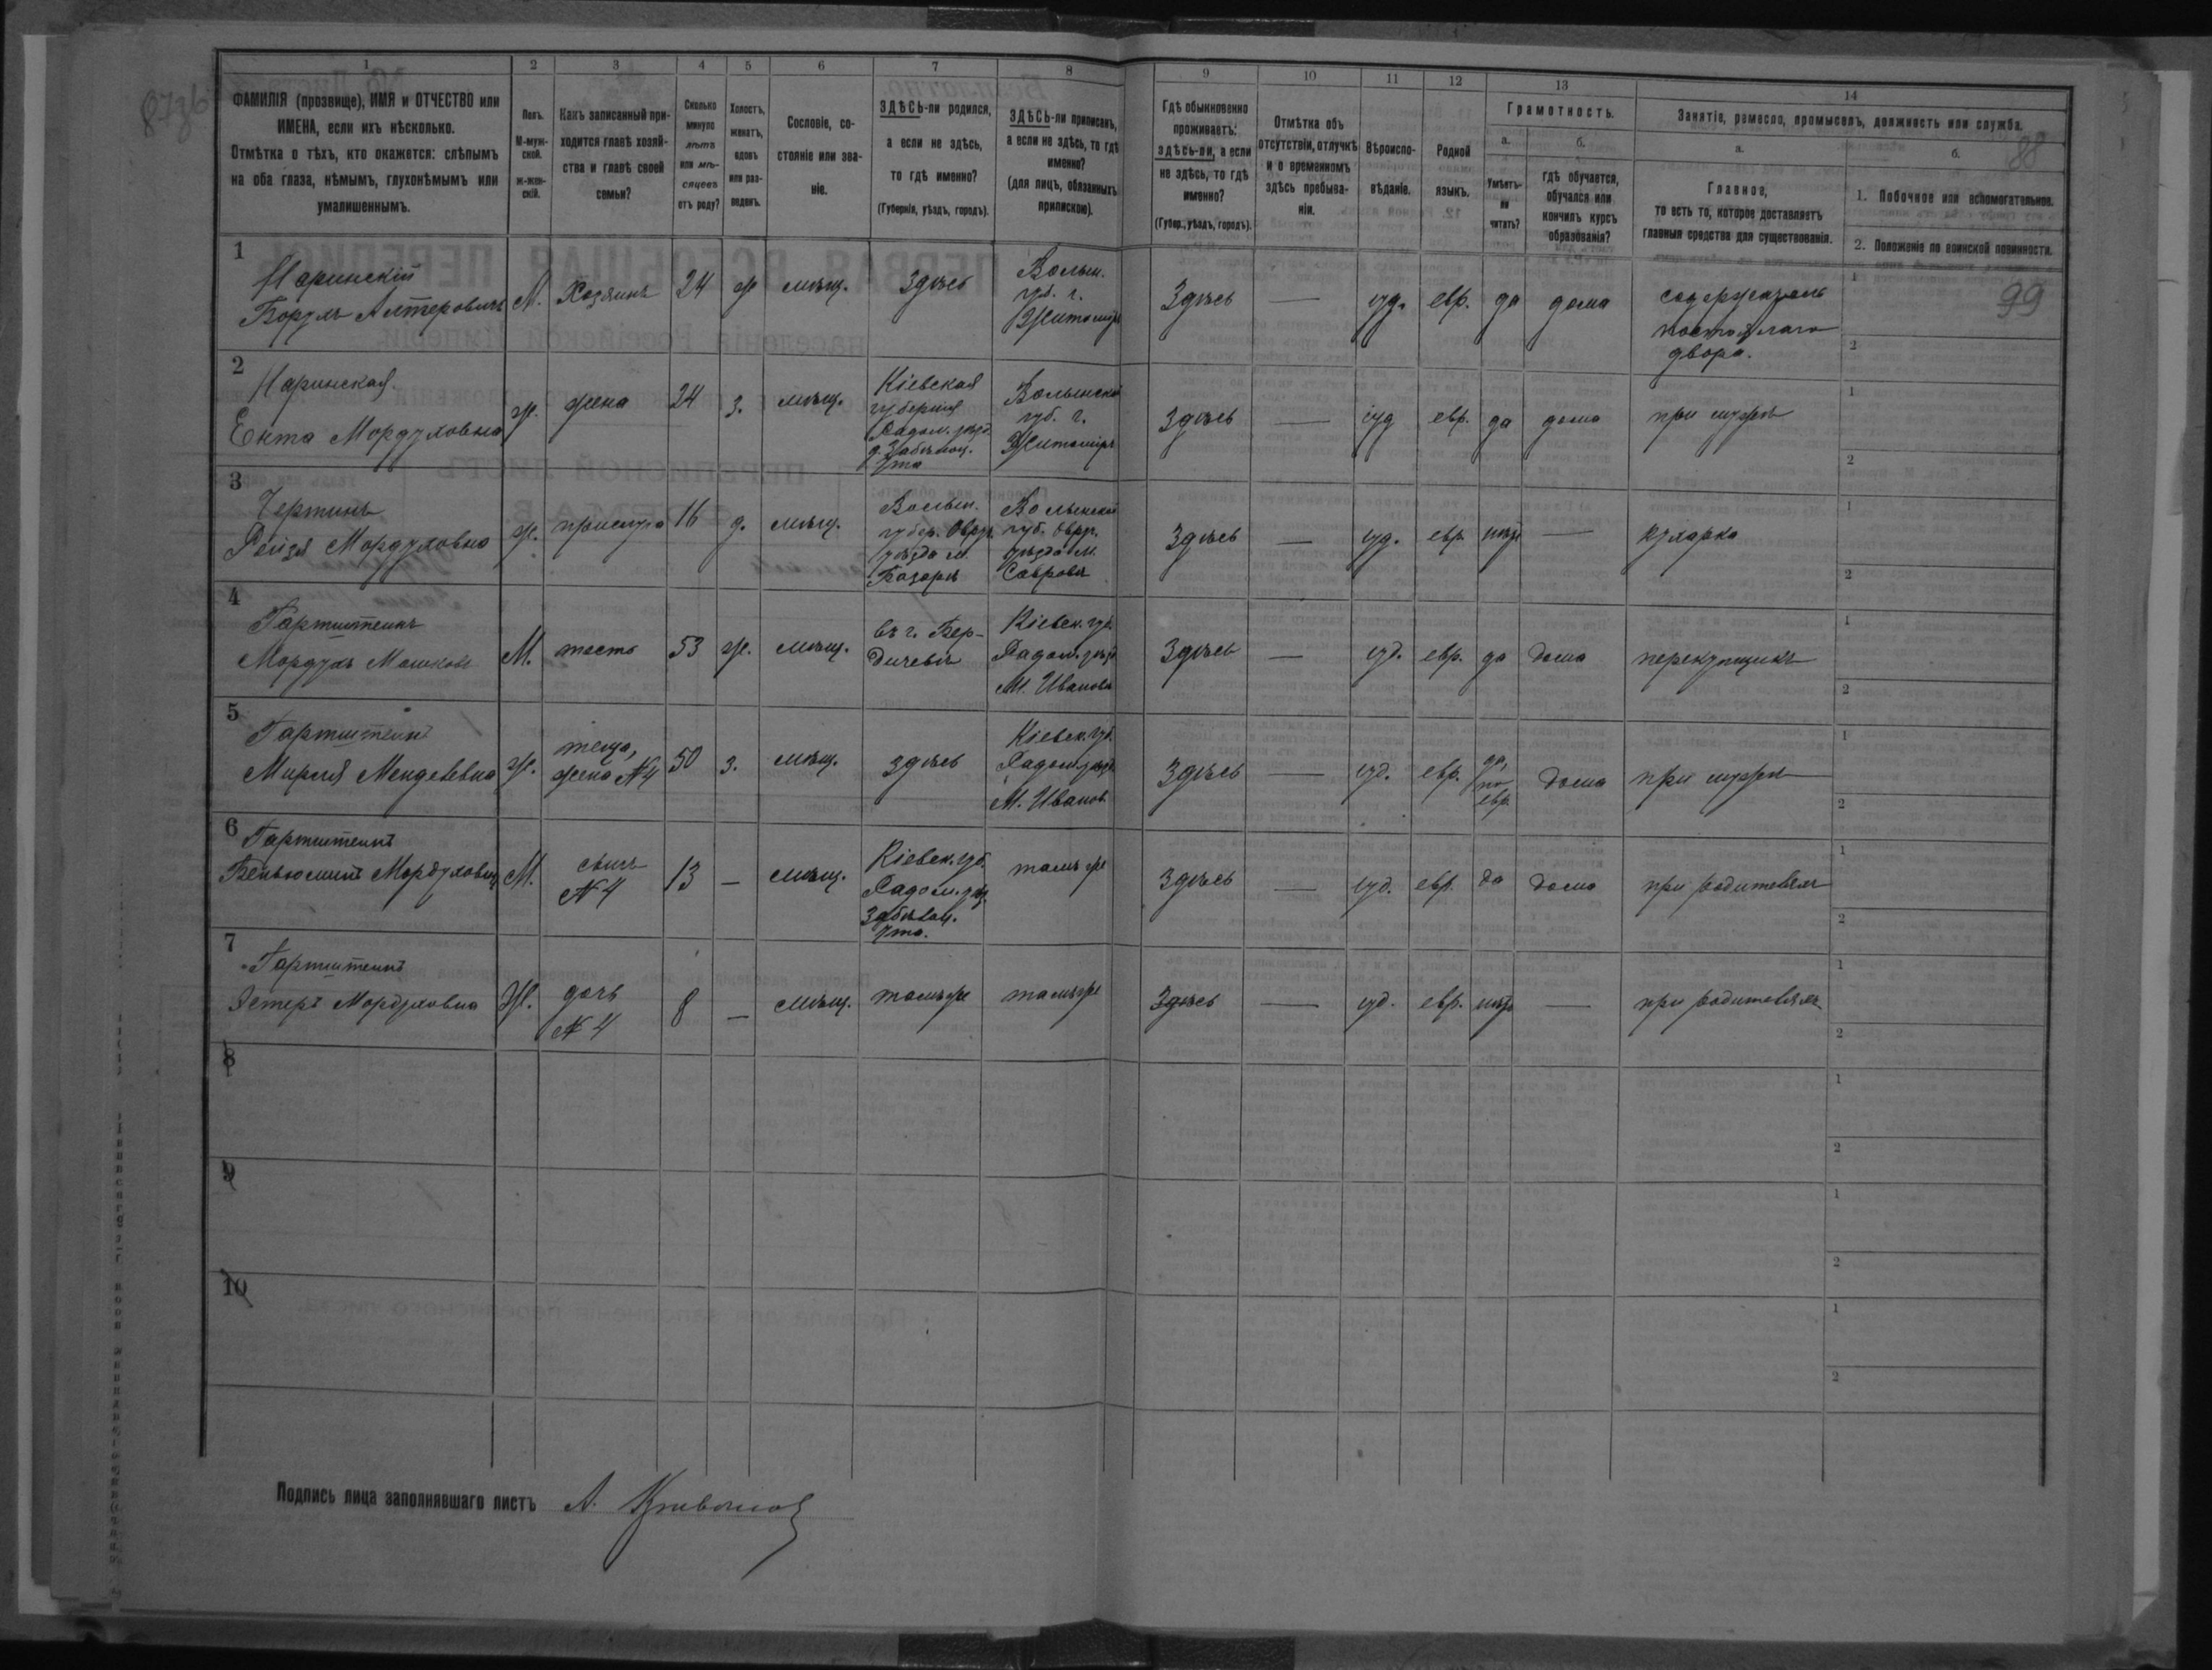 1 2 3 4 5 6 7 8 9 10 11 12 13 14
ФАМИЛІЯ (прозвище), ИМЯ и ОТЧЕСТВО или
ИМЕНА, если ихъ нѣсколько.
Отмѣтка о тѣхъ, кто окажется: слѣпымъ
на оба глаза, нѣмымъ, глухонѣмымъ или
умалишеннымъ.
Полъ.
М-муж-
ской.
ж-жен-
скій.
Какъ записанный при-
ходится главѣ хозяй-
ства и главѣ своей
семьи?
Сколько
минуло
лѣтъ
или мѣ-
сяцевъ
отъ роду?
Холостъ,
женатъ,
вдовъ
или раз-
веденъ.
Сословіе, со-
стояніе или зва-
ніе.
ЗДѢСЬ-ли родился,
а если не здѣсь,
то гдѣ именно?
(Губернія, уѣздъ, городъ).
ЗДѢСЬ-ли приписанъ,
а если не здѣсь, то гдѣ
именно?
(для лицъ, обязанныхъ
припискою).
Гдѣ обыкновенно
проживаетъ:
здѣсь-ли, а если
не здѣсь, то гдѣ
именно?
(Губер., уѣздъ, городъ).
Отмѣтка объ
отсутствіи, отлучкѣ
и о временномъ
здѣсь пребыва-
ніи.
Вѣроиспо-
вѣданіе.
Родной
языкъ.
Грамотность.
а.
Умѣетъ-
ли
читать?
б.
гдѣ обучается,
обучался или
кончилъ курсъ
образованія?
Занятіе, ремесло, промыселъ, должность или служба.
а.
Главное,
то есть то, которое доставляетъ
главныя средства для существованія.
б.
88
1. Побочное или вспомогательное.
2. Положеніе по воинской повинности.
99
1
Наринскій
Борухъ Алтеровичъ
М. Хозяинъ 24 ж мѣщ. Здѣсь
Волын.
губ. г.
Житоміръ
Здѣсь — іуд. евр. да дома
содержатель
постоялаго
двора.
2
Наринская
Ента Мордуховна
ж. жена 24 з. мѣщ.
Кіевская
губернія
Радом. уѣзд.
Волынской
губ. г.
Житоміръ
здѣсь — іуд евр. да дома при мужѣ
3
Рейзя Мордуховна
ж. прислуга 16 д. мѣщ.
Волын.
губер. Овруч.
уѣзда м.
Базаръ
Волынской
губ. Овруч.
уѣзда м.
Здѣсь — іуд. евр нѣтъ — кухарка
4
Гартштейнъ
Мордухъ Мошков
М. тесть 53 ж. мѣщ.
въ г. Бер-
дичевѣ
Кіевск. губ.
Радом. уѣзд
М. Иванков
Здѣсь — іуд. евр. да дома перекупщикъ
5
Гартштейнъ
Мирля Менделевна
ж.
теща,
жена №4
50 з. мѣщ. здѣсь
Кіевск. губ.
Радом. уѣзд
М. Иванов.
Здѣсь — іуд. евр.
да,
по
евр.
дома при мужѣ
6
Гартштейнъ
Беньюминъ Мордухович
М.
сынъ
№4
13 — мѣщ.
Кіевск. губ.
Радом. уѣз.
тамъ же
Здѣсь — іуд. евр. да дома при родителяхъ
7
Гартштейнъ
Эстеръ Мордуховна
Ж.
дочь
№4
8 — мѣщ. тамъ же тамъ же
Здѣсь — іуд. евр. нѣтъ — при родителяхъ
8
9
10
Подпись лица заполнявшаго листъ А.